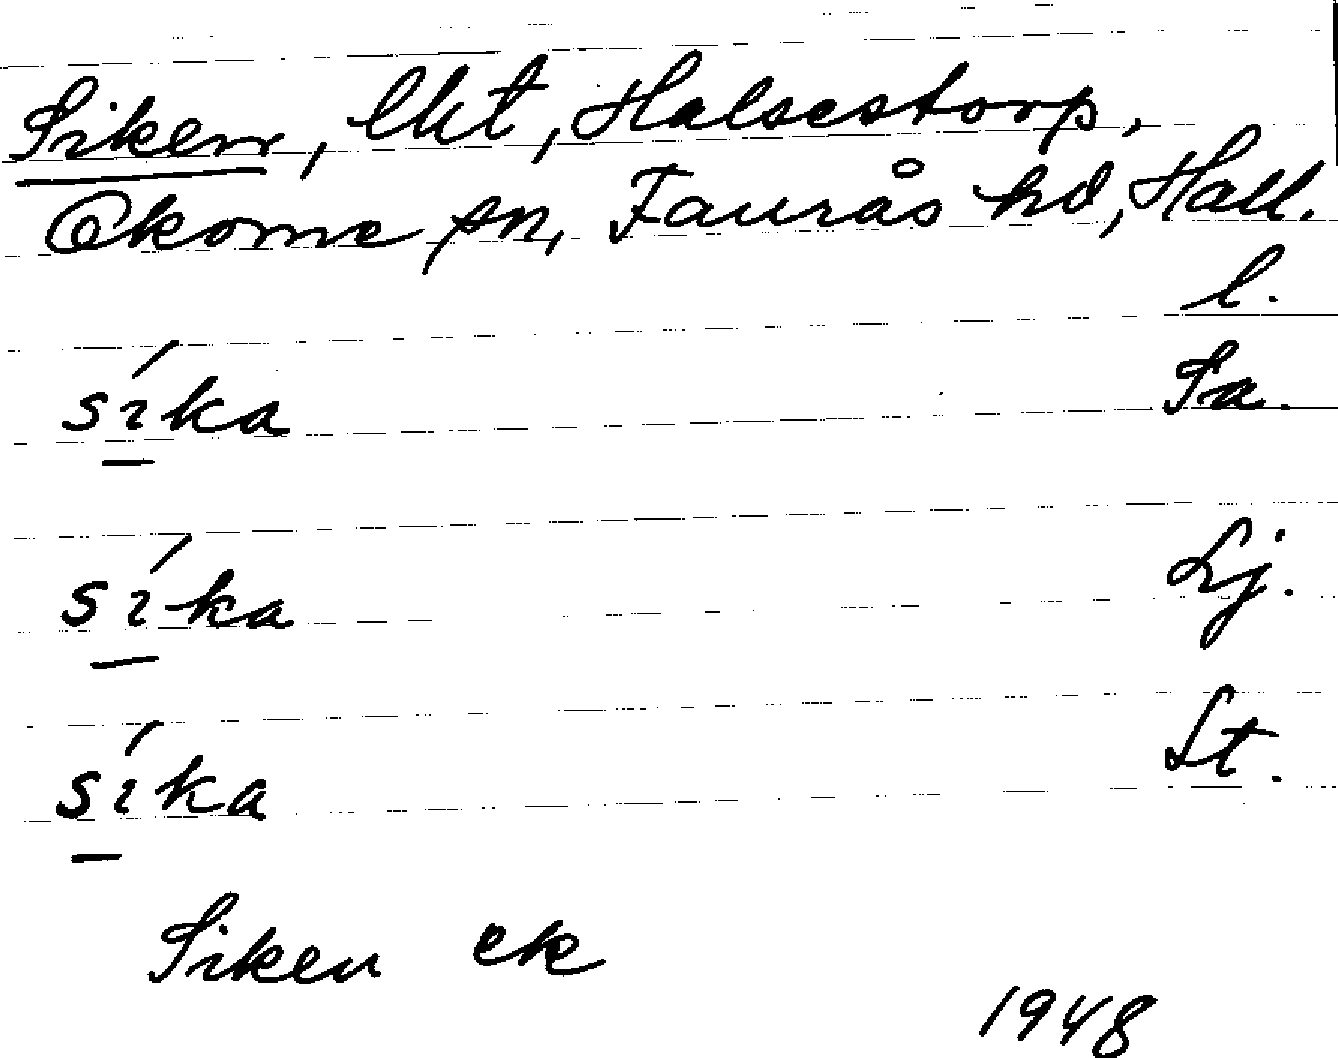 Siken, lht, Halsestorp,
Okome sn, Faurås hd, Hall.
l.
síka Sa.
síka Lj.
síka St.
Siken ek
1948